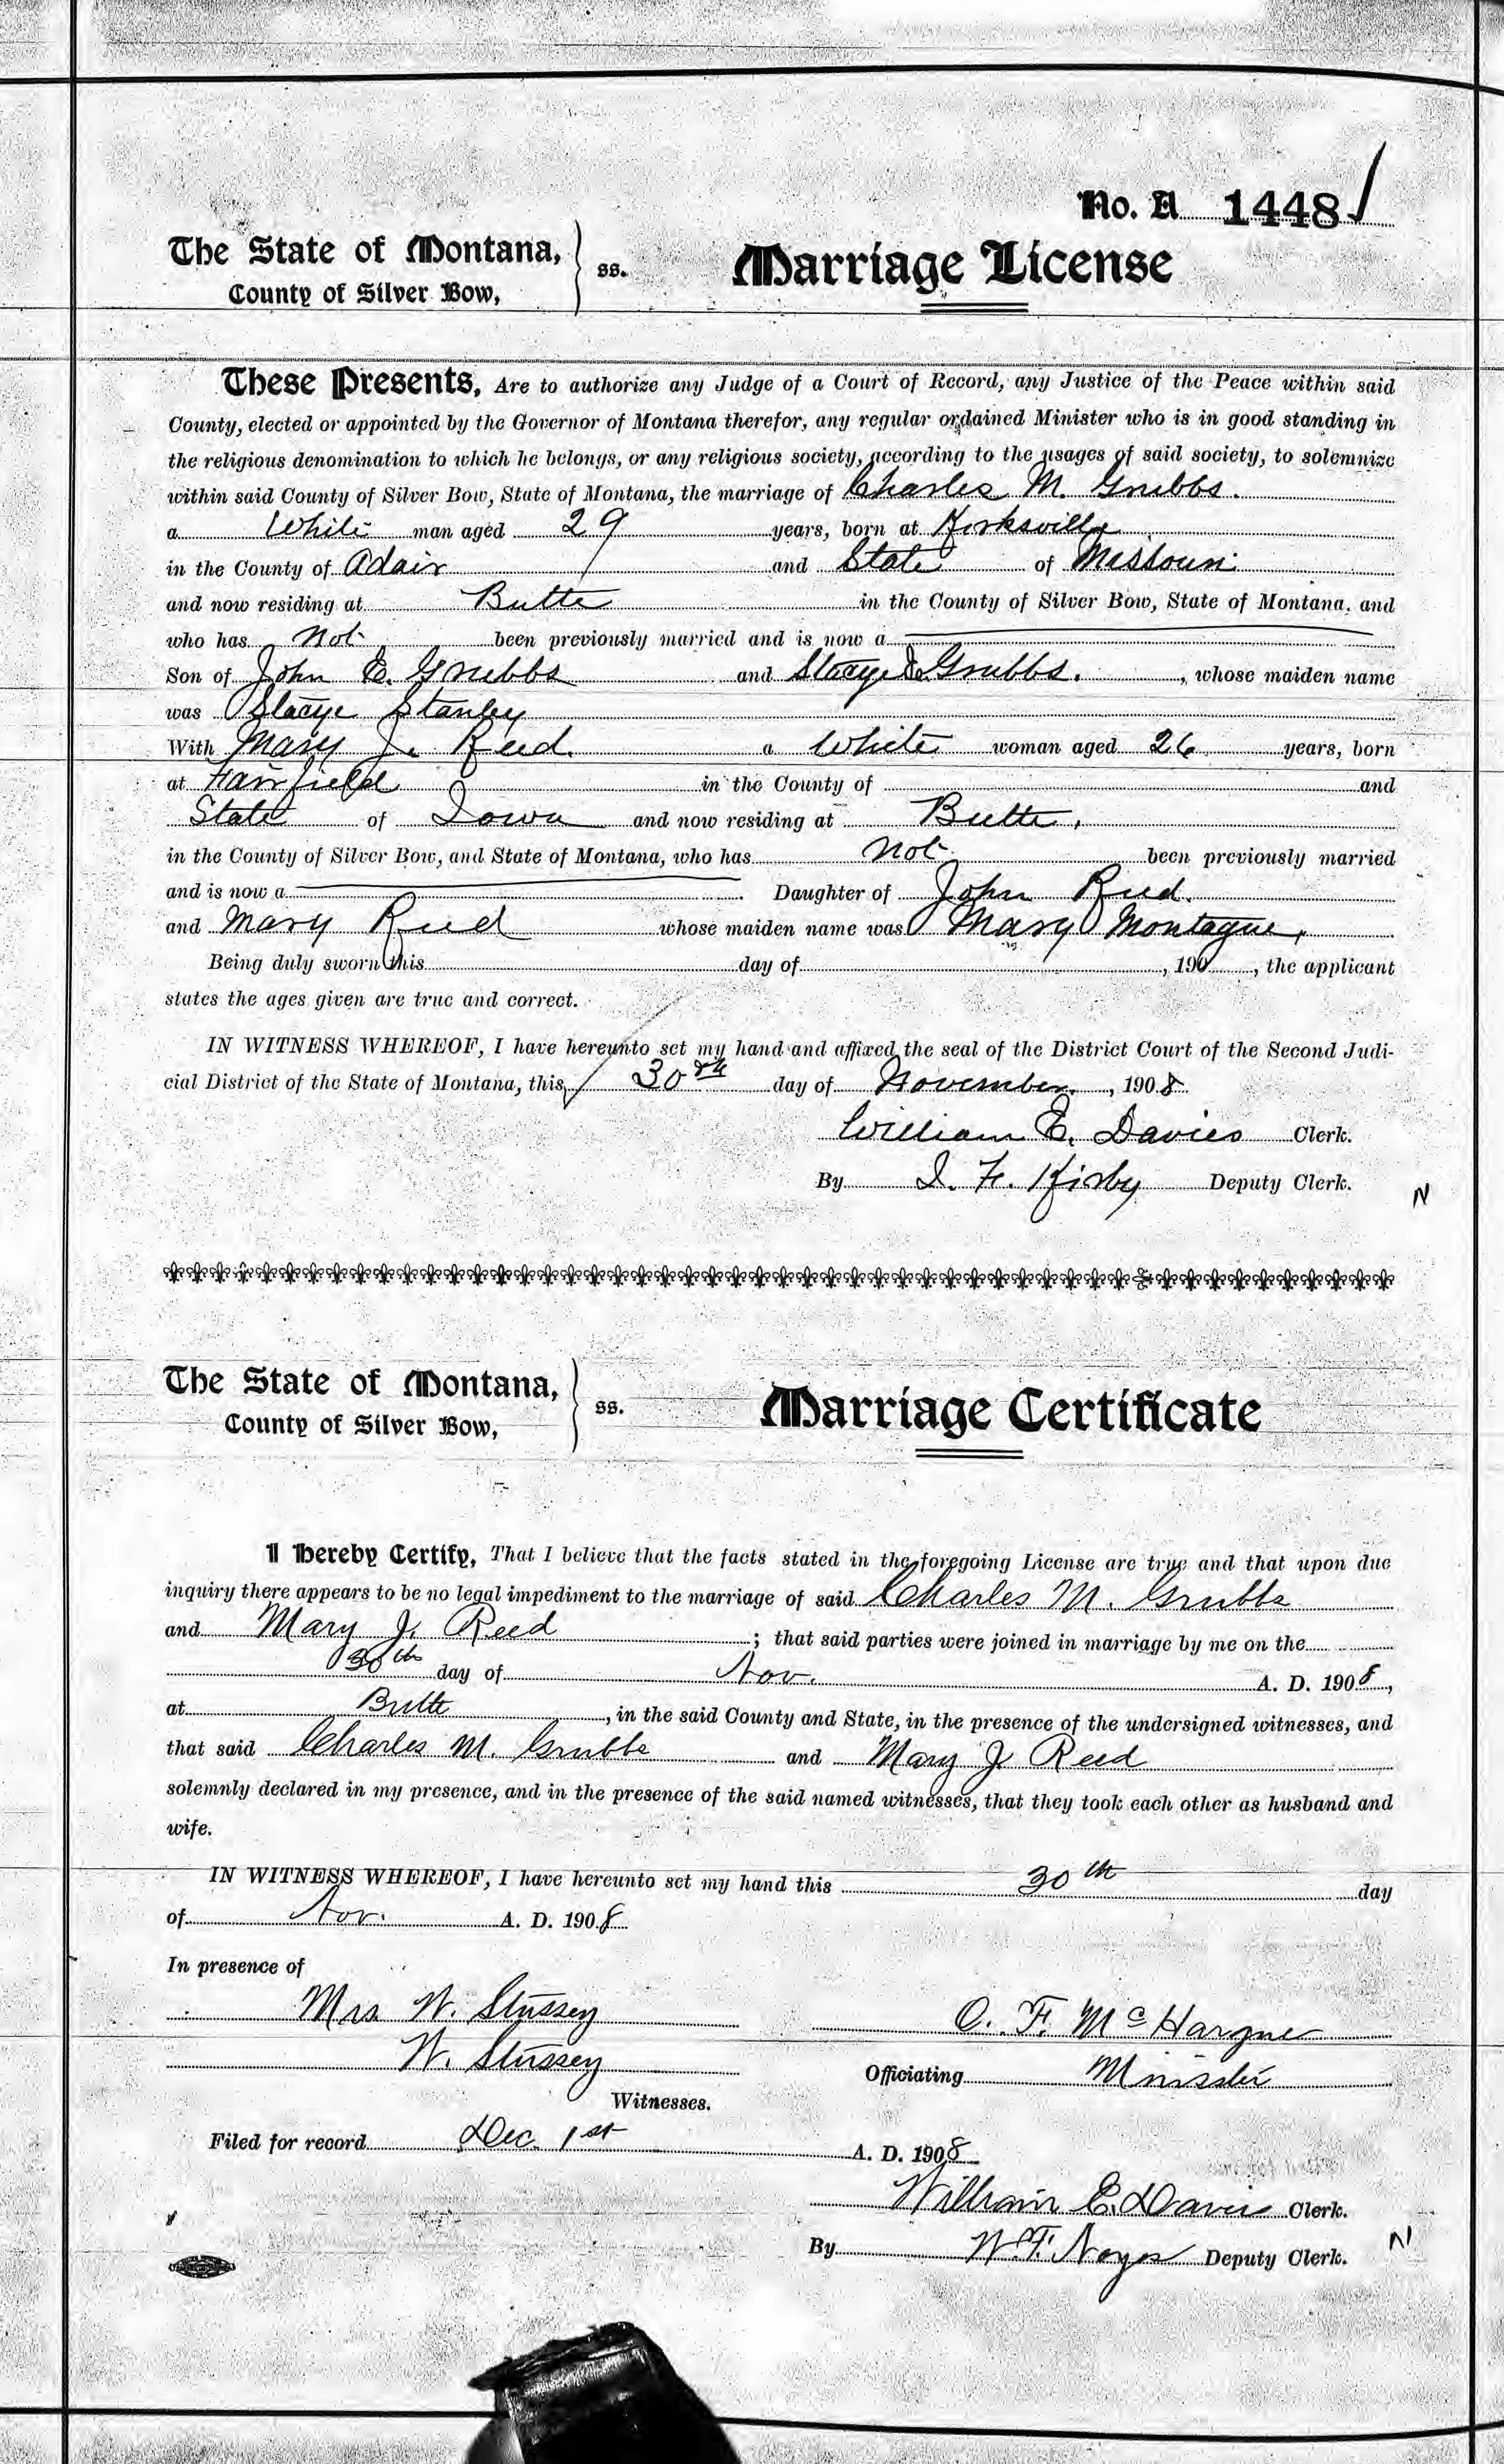 No. A 1448
The State of Montana,
County of Silver Bow,
ss.
Marriage License
These Presents, Are to authorize any Judge of a Court of Record, any Justice of the Peace within said
County, elected or appointed by the Governor of Montana therefor, any regular ordained Minister who is in good standing in
the religious denomination to which he belongs, or any religious society, according to the usages of said society, to solemnize
within said County of Silver Bow, State of Montana, the marriage of Charles M. Grubbs.
a White man aged 29 years, born at Kirksville
in the County of Adair and State of Missouri
and now residing at Butte in the County of Silver Bow, State of Montana, and
who has not been previously married and is now a
Son of John E. Grubbs and Stacye Grubbs. , whose maiden name
was Stacye Stanley
With Mary J. Reed. a White woman aged 26 years, born
at Fairfield in the County of and
State of Iowa and now residing at Butte,
in the County of Silver Bow, and State of Montana, who has not been previously married
and is now a . Daughter of John Reed.
and Mary Reed whose maiden name was Mary Montague,
Being duly sworn this day of , 190 , the applicant
states the ages given are true and correct.
IN WITNESS WHEREOF, I have hereunto set my hand and affixed the seal of the District Court of the Second Judi-
cial District of the State of Montana, this 30th day of November , 1908
William E. Davies Clerk.
By I. F. Kirby Deputy Clerk.
N
The State of Montana,
County of Silver Bow,
ss.
Marriage Certificate
I Hereby Certify, That I believe that the facts stated in the foregoing License are true and that upon due
inquiry there appears to be no legal impediment to the marriage of said Charles M. Grubbs
and Mary J. Reed ; that said parties were joined in marriage by me on the
30th day of Nov. A. D. 1908,
at Butte , in the said County and State, in the presence of the undersigned witnesses, and
that said Charles M. Grubbs and Mary J. Reed
solemnly declared in my presence, and in the presence of the said named witnesses, that they took each other as husband and
wife.
IN WITNESS WHEREOF, I have hereunto set my hand this 30th day
of Nov. A. D. 1908
In presence of
Mrs. W. Stüssey
O. F. McHargue
W. Stüssey
Officiating Minister
Witnesses.
Filed for record Dec. 1st A. D. 1908
William E. Davies Clerk.
By W. F. Noyes Deputy Clerk.
N